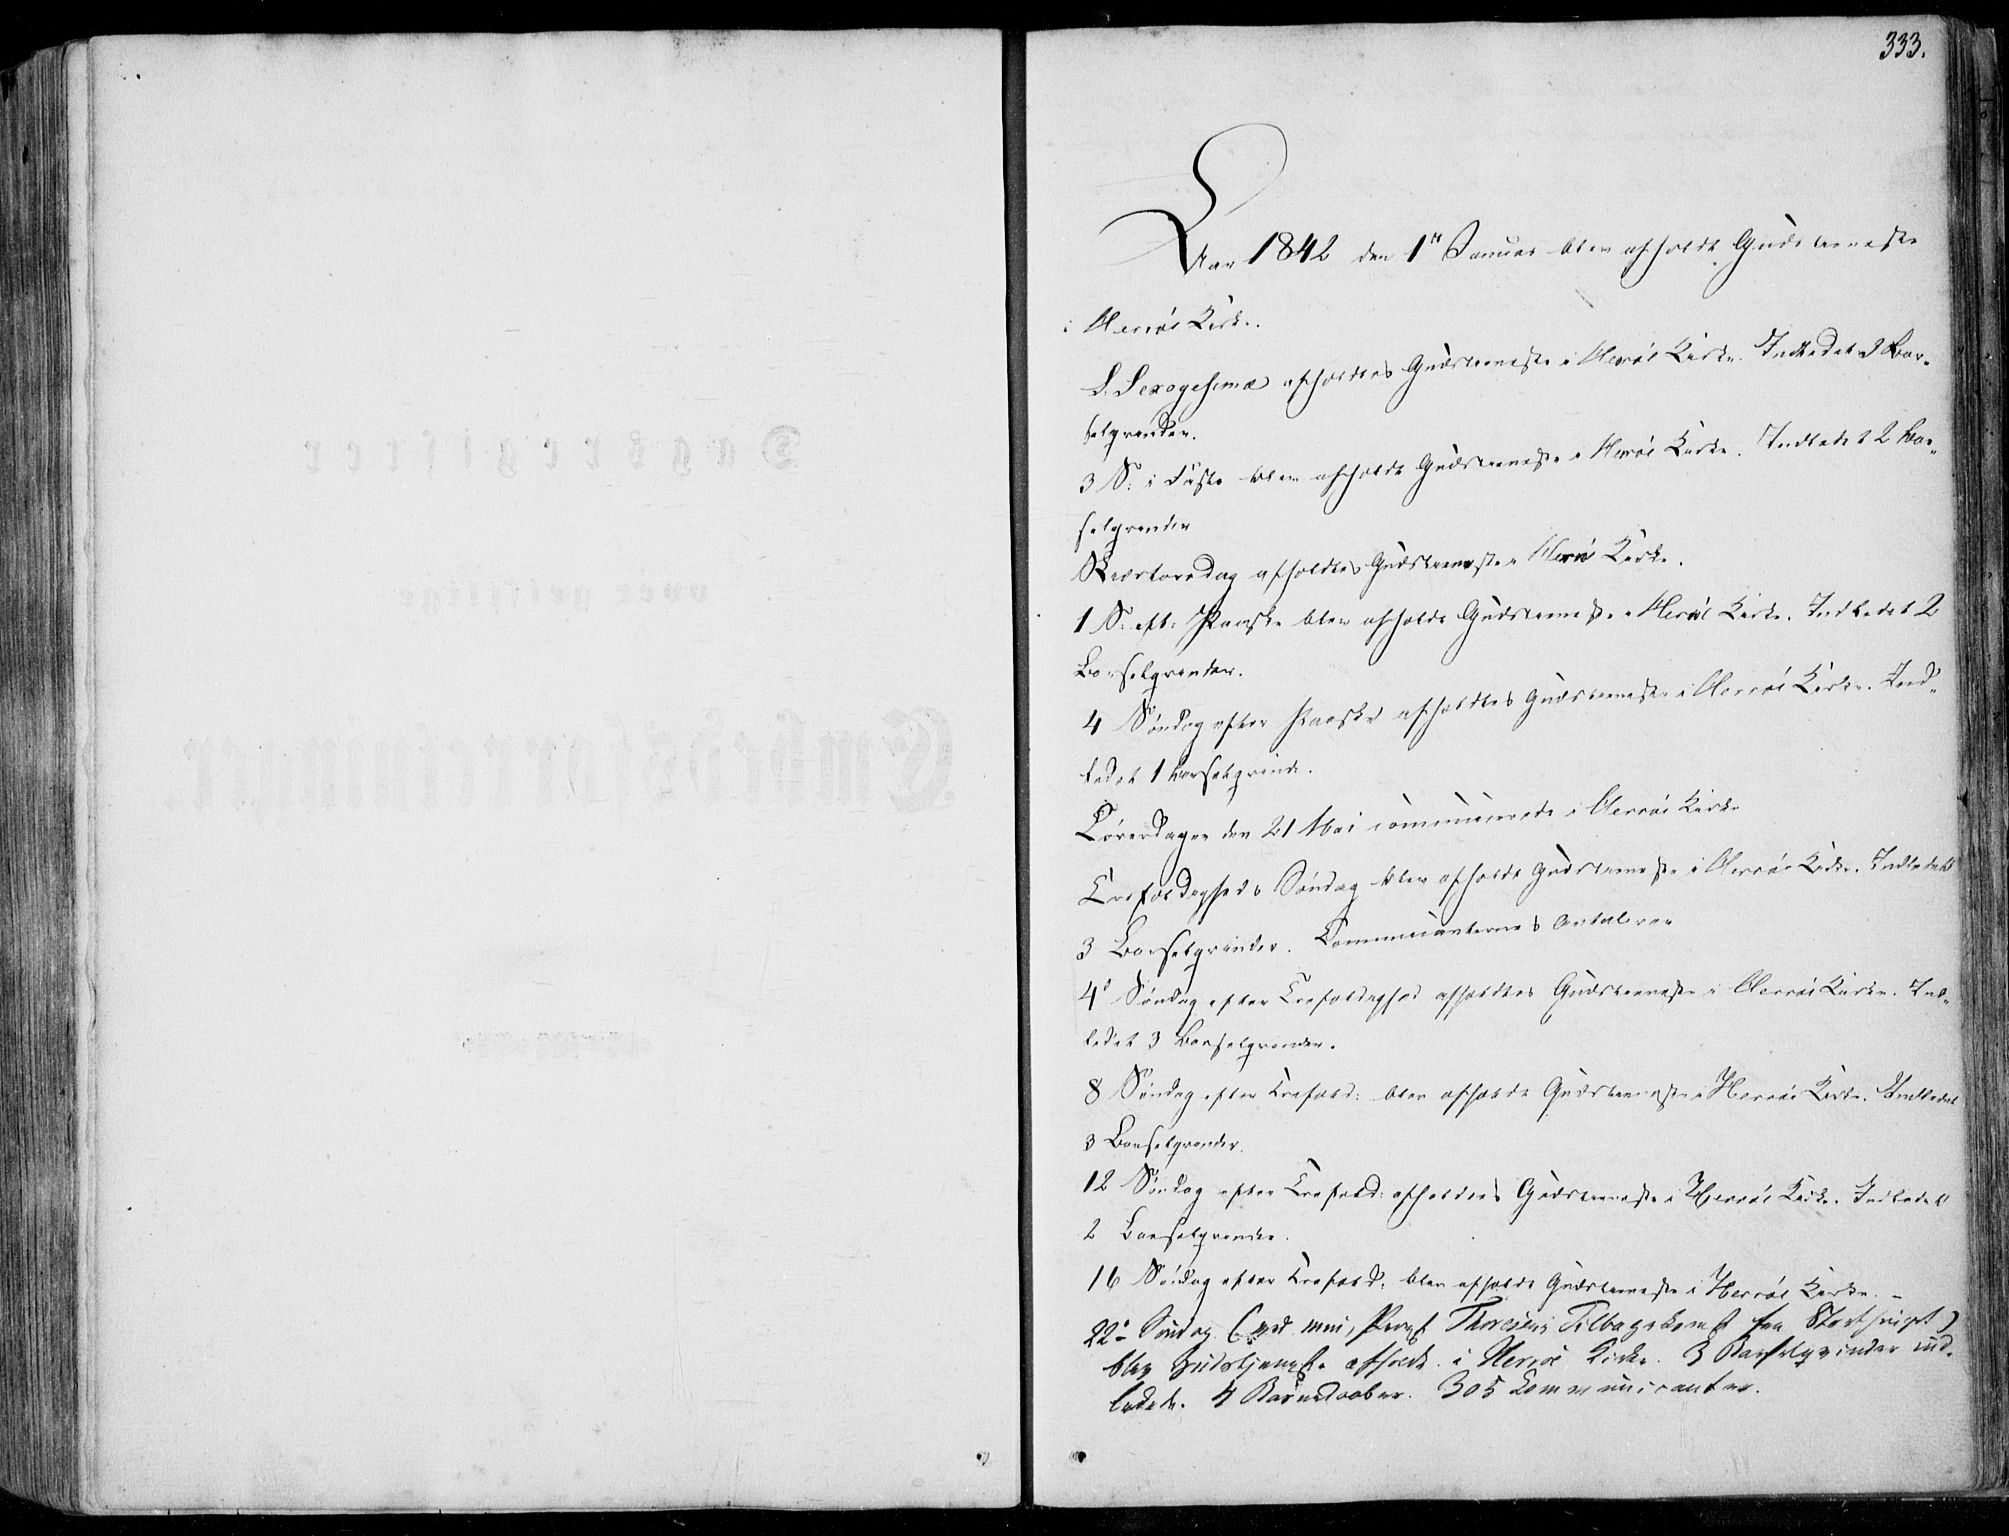 333.
Aar 1842 den 1ste Januar blev afholdt Gudstieneste
i Herröe Kirke.
S. Sexagesimæ afholdtes Gudstieneste i Herröe Kirke. Indledet 3 Bar-
selqvinder.
3 S: i Faste blev afholdt Gudstieneste i Herröe Kirke. Indledet 2 Bar-
selqvinder
Skiærtorsdag afholdtes Gudstieneste i Herröe Kirke.
1 S: eft: Paaske blev afholdt Gudstieneste i Herröe Kirke. Indledet 2
Barselqvinder.
4 Söndag efter Paaske afholdtes Gudstieneste i Herröe Kirke. Ind-
ledet 1 Barselqvinde.
Löverdagen den 21 Mai communicerede i Herröe Kirke
Trefoldigheds Söndag blev afholdt Gudstieneste i Herröe Kirke. Indledet
3 Barselqvinder. Communicanternes Antal var
4de Söndag efter Trefoldighed afholdtes Gudstieneste i Herröe Kirke. Ind-
ledet 3 Barselqvinder.
8 Söndag efter Trefold: blev afholdt Gudstieneste i Herröe Kirke. Indledet
3 Barselqvinder.
12 Söndag efter Trefold: afholdtes Gudstieneste i Herröe Kirke. Indledet
2 Barselqvinder.
16 Söndag efter Trefold: blev afholdt Gudstieneste i Herröe Kirke. –
22de Söndag (ved min, Provst Thoresens Tilbagekomst fra Storthinget)
blev Gudstjeneste afholdt i Herröe Kirke. 3 Barselqvinder ind-
ledede. 4 Barnedaaber. 305 Communicanter.
Dagsregister
over geistlige
Embedsforretninger.